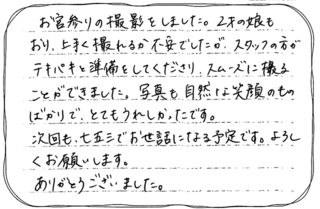 お宮参りの撮影をしました。2才の娘も
おり、上手く撮れるか不安でしたが、スタッフの方が
テキパキと準備をしてくださり、スムーズに撮る
ことができました。写真も自然な笑顔のもの
ばかりで、とてもうれしかったです。
次回も、七五三でお世話になる予定です。よろし
くお願いします。
ありがとうございました。